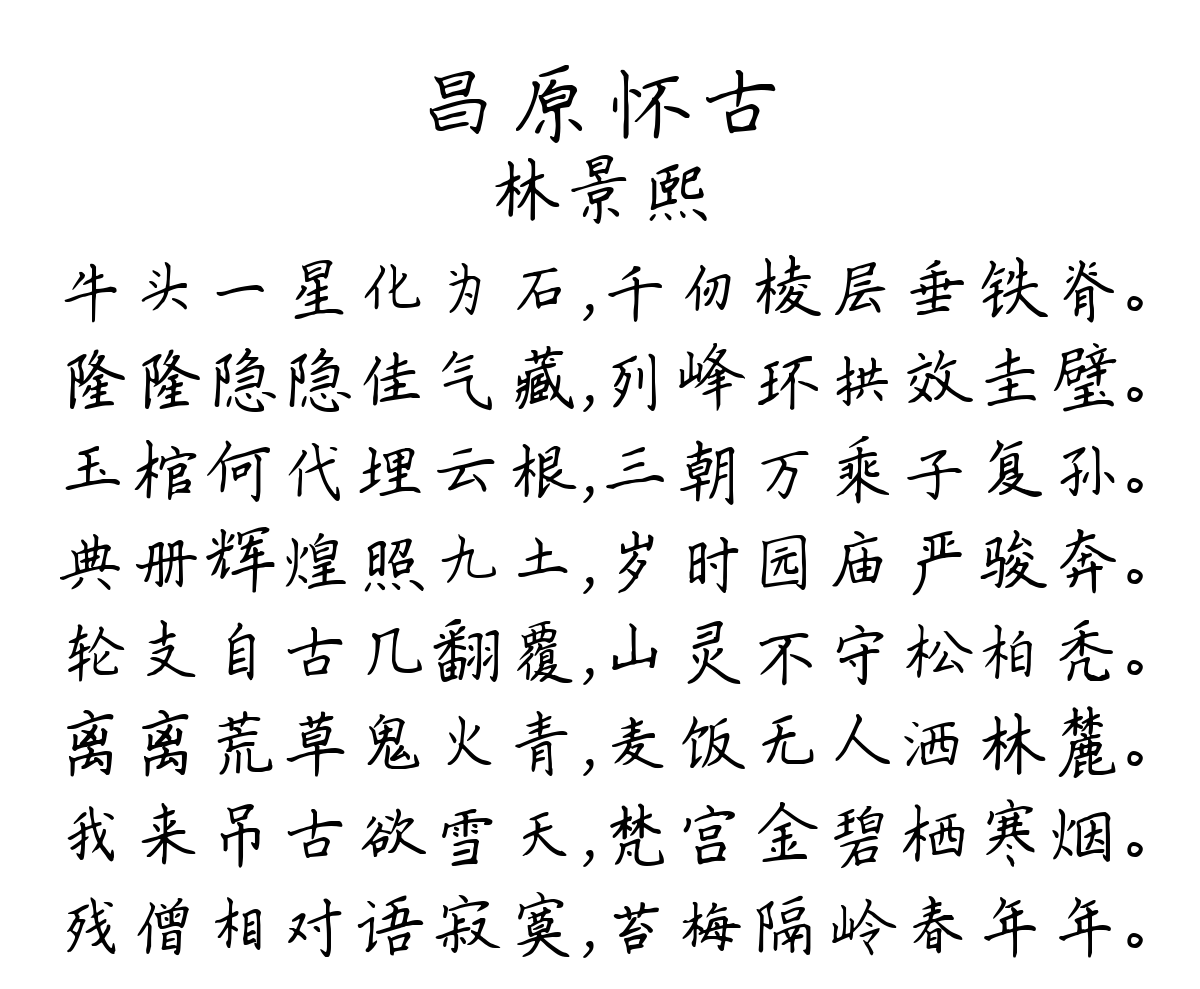 昌原怀古
林景熙
牛头一星化为石,千仞棱层垂铁脊。
隆隆隐隐佳气藏,列峰环拱效圭璧。
玉棺何代埋云根,三朝万乘子复孙。
典册辉煌照九土,岁时园庙严骏奔。
轮支自古几翻覆,山灵不守松柏秃。
离离荒草鬼火青,麦饭无人洒林麓。
我来吊古欲雪天,梵宫金碧栖寒烟。
残僧相对语寂寞,苔梅隔岭春年年。